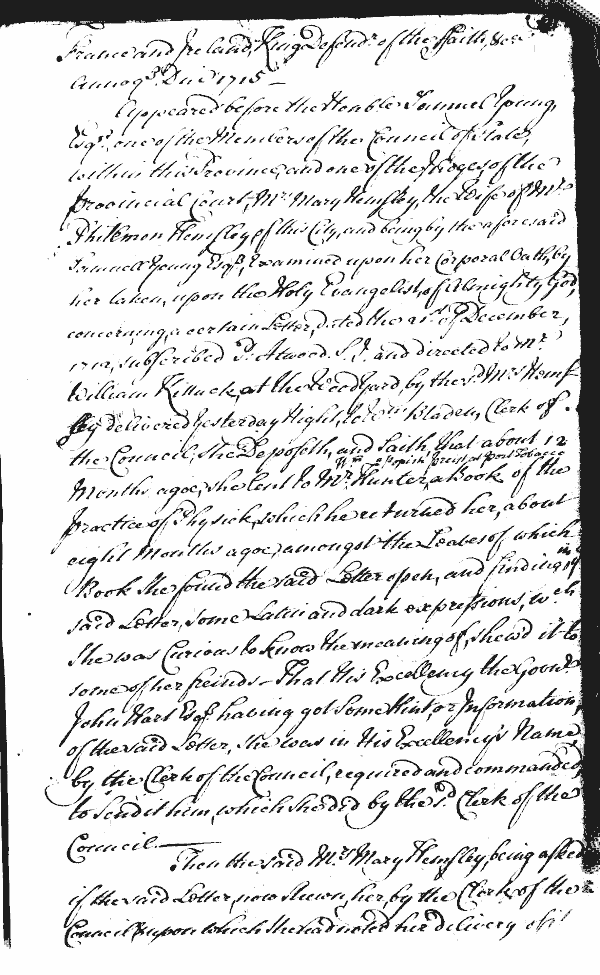 France and Ireland, King Defendr. of the Faith, &ca.
Annoq. Dni. 1715 —
Appeared before the Honble. Samuel Young,
Esqr. one of the Members of the Council of State,
within this Province, and one of the Judges of the
Provincial Court, Mrs. Mary Hemsley, the Wife of Mr.
Philemon Hemsley of this City, and being by the aforesaid
Samuel Young Esqr. Examined upon her Corporal Oath, by
her taken, upon the Holy Evangelist, of Almighty God,
concerning, a certain Letter, dated the 21st. of December,
1712, subscribed P. Atwood S. J. and directed to Mr.
William Killuck at the Wood Yard, by the sd. Mrs. Hems-
ley delivered Yesterday Night, to Wm. Bladen, Clerk of
the Council, She Deposeth, and Saith, that about 12
Months agoe, She lent to Mr. Wm. Hunter, a Popish Priest, at Port Tobacco a Book of the
Practice of Physick, which he returned her, about
eight Months agoe, amongst the Leaves of which
Book She found the said Letter open, and finding in ye.
said Letter, some Latin and dark expressions, wch.
She was Curious to know the meaning of, shew'd it to
some of her freinds — That His Excellency the Govr.
John Hart Esqr. having got Some Hint, or Information,
of the said Letter, She was in His Excellency's Name
by the Clerk of the Council, required and commanded
to Send it him, which she did by the sd. Clerk of the
Council —
Then the said Mrs. Mary Hemsley, being asked
if the said Letter, now Shewn, her, by the Clerk of the
Council upon which She had noted her delivery of it